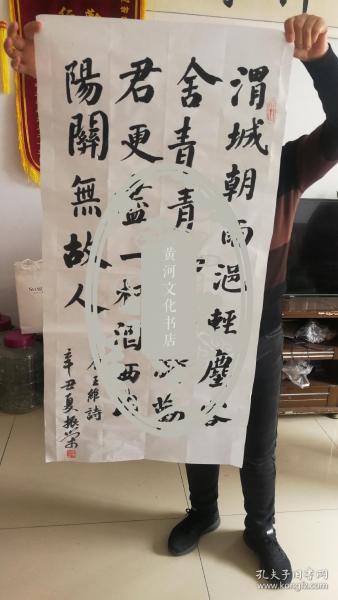 渭城朝雨浥輕塵客
舍青青
君更盡一杯酒西出
陽關無故人
王維詩
辛丑夏振
黄河文化书店
孔夫子旧书网
www.kongfz.com